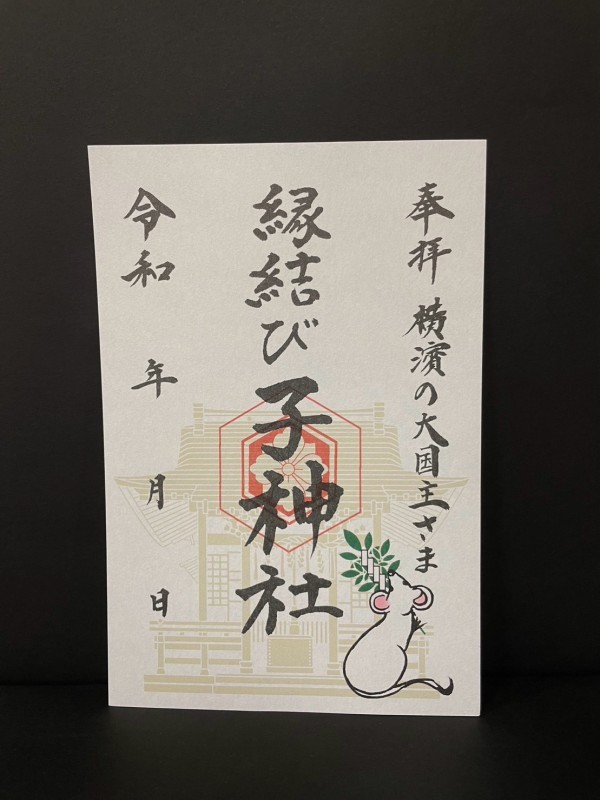 奉拝 横濱の大国主さま
縁結び子神社
令和 年 月 日